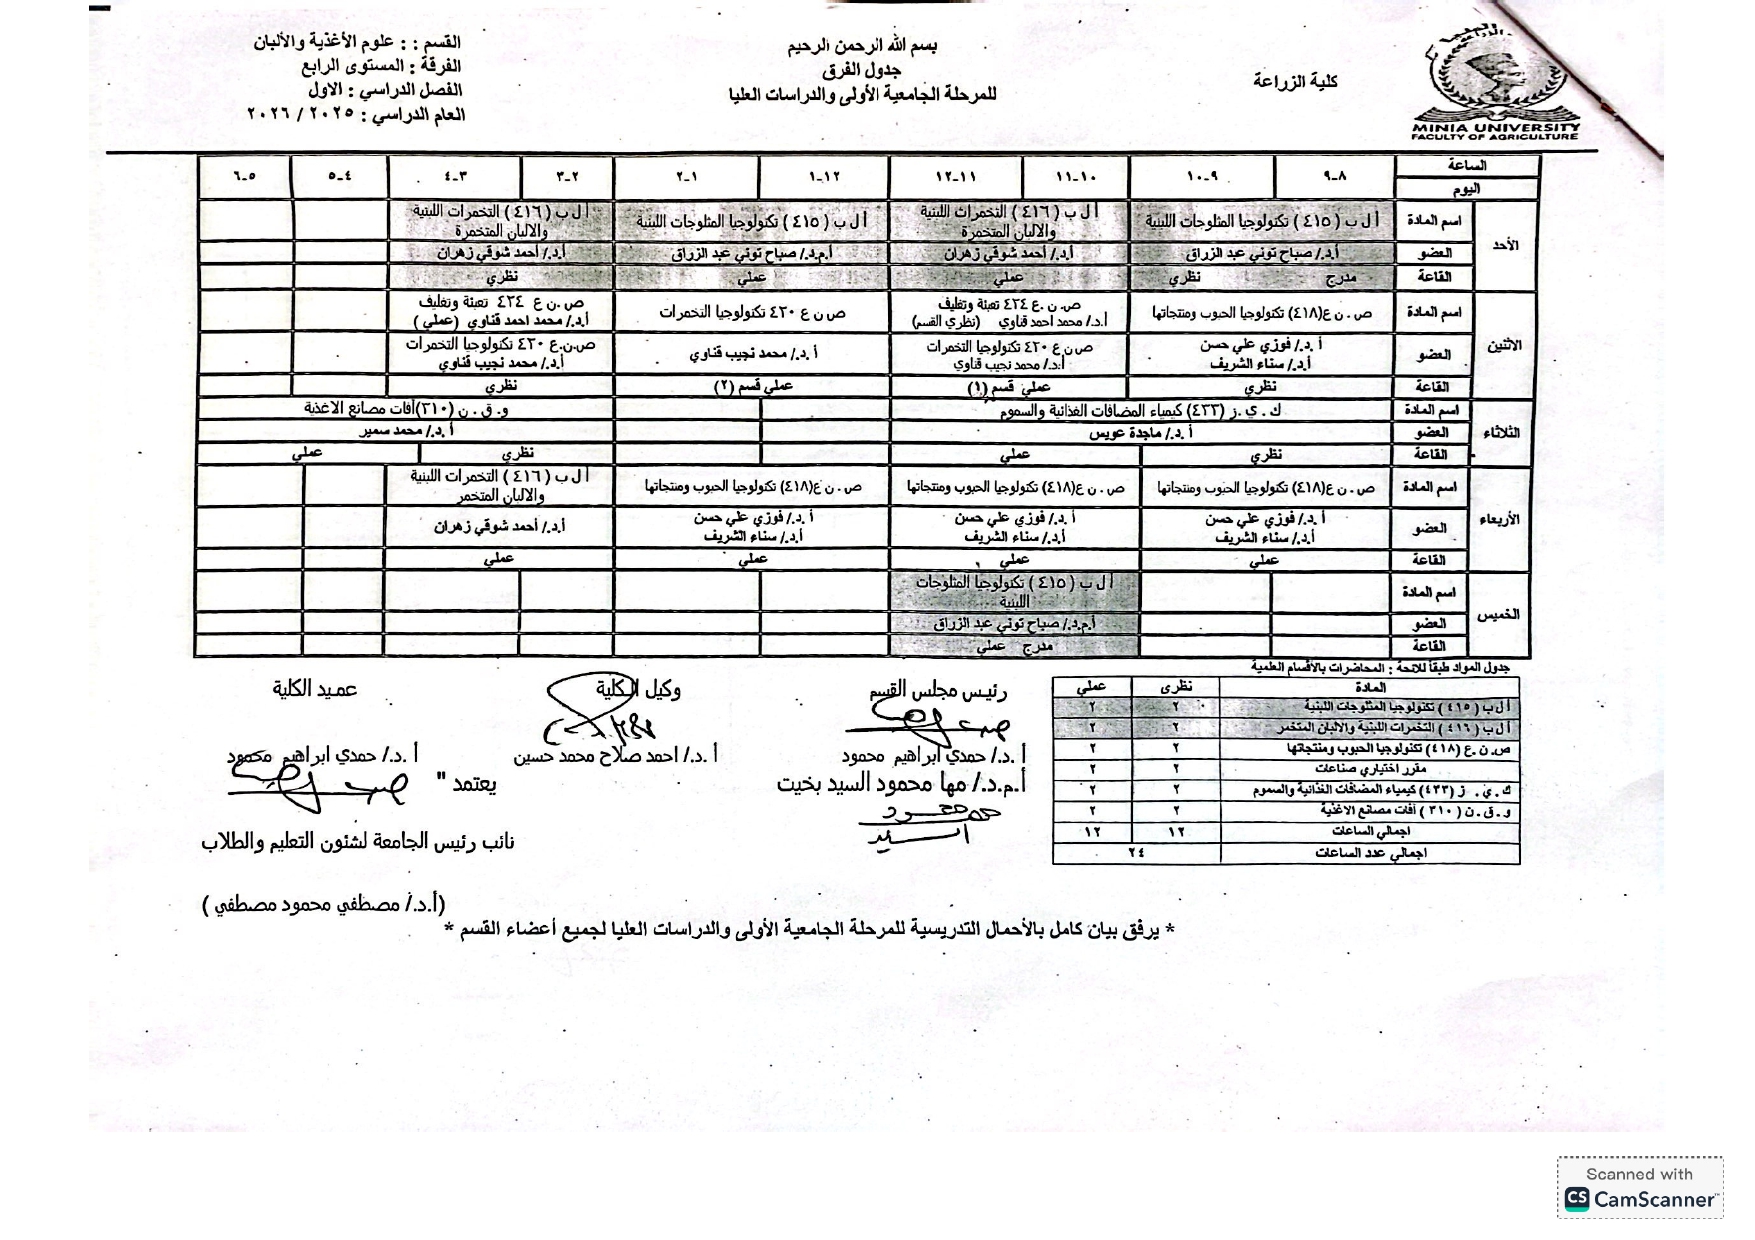 القسم : : علوم الأغذية والألبان
الفرقة : المستوى الرابع
الفصل الدراسي : الاول
العام الدراسي : ٢٠٢٥ / ٢٠٢٦
بسم الله الرحمن الرحيم
جدول الفرق
للمرحلة الجامعية الأولى والدراسات العليا
كلية الزراعة
MINIA UNIVERSITY
FACULTY OF AGRICULTURE
الساعة ٨-٩ ٩-١٠ ١٠-١١ ١١-١٢ ١٢-١ ١-٢ ٢-٣ ٣-٤ ٤-٥ ٥-٦
اليوم
الأحد
اسم المادة أ ل ب ( ٤١٥ ) تكنولوجيا المثلوجات اللبنية أ ل ب ( ٤١٦ ) التخمرات اللبنية والالبان المتخمرة أ ل ب ( ٤١٥ ) تكنولوجيا المثلوجات اللبنية أ ل ب ( ٤١٦ ) التخمرات اللبنية والالبان المتخمرة
العضو أ.د./ صباح توني عبد الرزاق أ.د./ أحمد شوقي زهران أ.م.د./ صباح توني عبد الرزاق أ.د./ أحمد شوقي زهران
القاعة مدرج نظري عملي عملي نظري
الاثنين
اسم المادة ص . ن ع(٤١٨) تكنولوجيا الحبوب ومنتجاتها ص.ن .ع ٤٢٤ تعبئة وتغليف أ.د./ محمد احمد قناوي (نظري القسم) ص ن ع ٤٢٠ تكنولوجيا التخمرات ص .ن ع ٤٢٤ تعبئة وتغليف أ.د./ محمد احمد قناوي (عملي )
العضو أ .د./ فوزي علي حسن أ.د./ سناء الشريف ص.ن.ع ٤٢٠ تكنولوجيا التخمرات أ.د./ محمد نجيب قناوي أ .د./ محمد نجيب قناوي ص.ن.ع ٤٢٠ تكنولوجيا التخمرات أ.د./ محمد نجيب قناوي
القاعة نظري عملي قسم (١) عملي قسم (٢) نظري
الثلاثاء
اسم المادة ك . ي . ز (٤٣٣) كيمياء المضافات الغذائية والسموم و. ق . ن (٣١٠)أفات مصانع الاغذية
العضو أ .د./ ماجدة عويس أ .د./ محمد سمير
القاعة نظري عملي نظري عملي
الأربعاء
اسم المادة ص . ن ع(٤١٨) تكنولوجيا الحبوب ومنتجاتها ص . ن ع(٤١٨) تكنولوجيا الحبوب ومنتجاتها ص . ن ع(٤١٨) تكنولوجيا الحبوب ومنتجاتها أ ل ب ( ٤١٦ ) التخمرات اللبنية والالبان المتخمر
العضو أ .د./ فوزي علي حسن أ.د./ سناء الشريف أ .د./ فوزي علي حسن أ.د./ سناء الشريف أ .د./ فوزي علي حسن أ.د./ سناء الشريف أ.د./ أحمد شوقي زهران
القاعة عملي عملي عملي عملي
الخميس
اسم المادة أ ل ب ( ٤١٥ ) تكنولوجيا المثلوجات اللبنية
العضو أ.م.د./ صباح توني عبد الرزاق
القاعة مدرج عملي
جدول المواد طبقاً للائحة : المحاضرات بالأقسام العلمية
المادة نظرى عملي
أ ل ب ( ٤١٥ ) تكنولوجيا المثلوجات اللبنية ٢ ٢
أ ل ب ( ٤١٦ ) التخمرات اللبنية والالبان المتخمر ٢ ٢
ص. ن .ع (٤١٨) تكنولوجيا الحبوب ومنتجاتها ٢ ٢
مقرر اختياري صناعات ٢ ٢
ك . ي . ز (٤٣٣) كيمياء المضافات الغذائية والسموم ٢ ٢
و. ق . ن ( ٣١٠ ) أفات مصانع الاغذية ٢ ٢
اجمالي الساعات ١٢ ١٢
اجمالي عدد الساعات ٢٤
رئيس مجلس القسم وكيل الكلية عميد الكلية
أ .د./ حمدي ابراهيم محمود أ .د./ احمد صلاح محمد حسين أ .د./ حمدي ابراهيم محمود
أ.م.د./ مها محمود السيد بخيت
يعتمد "
نائب رئيس الجامعة لشئون التعليم والطلاب
(أ.د./ مصطفي محمود مصطفي )
* يرفق بيان كامل بالأحمال التدريسية للمرحلة الجامعية الأولى والدراسات العليا لجميع أعضاء القسم *
Scanned with
CS CamScanner